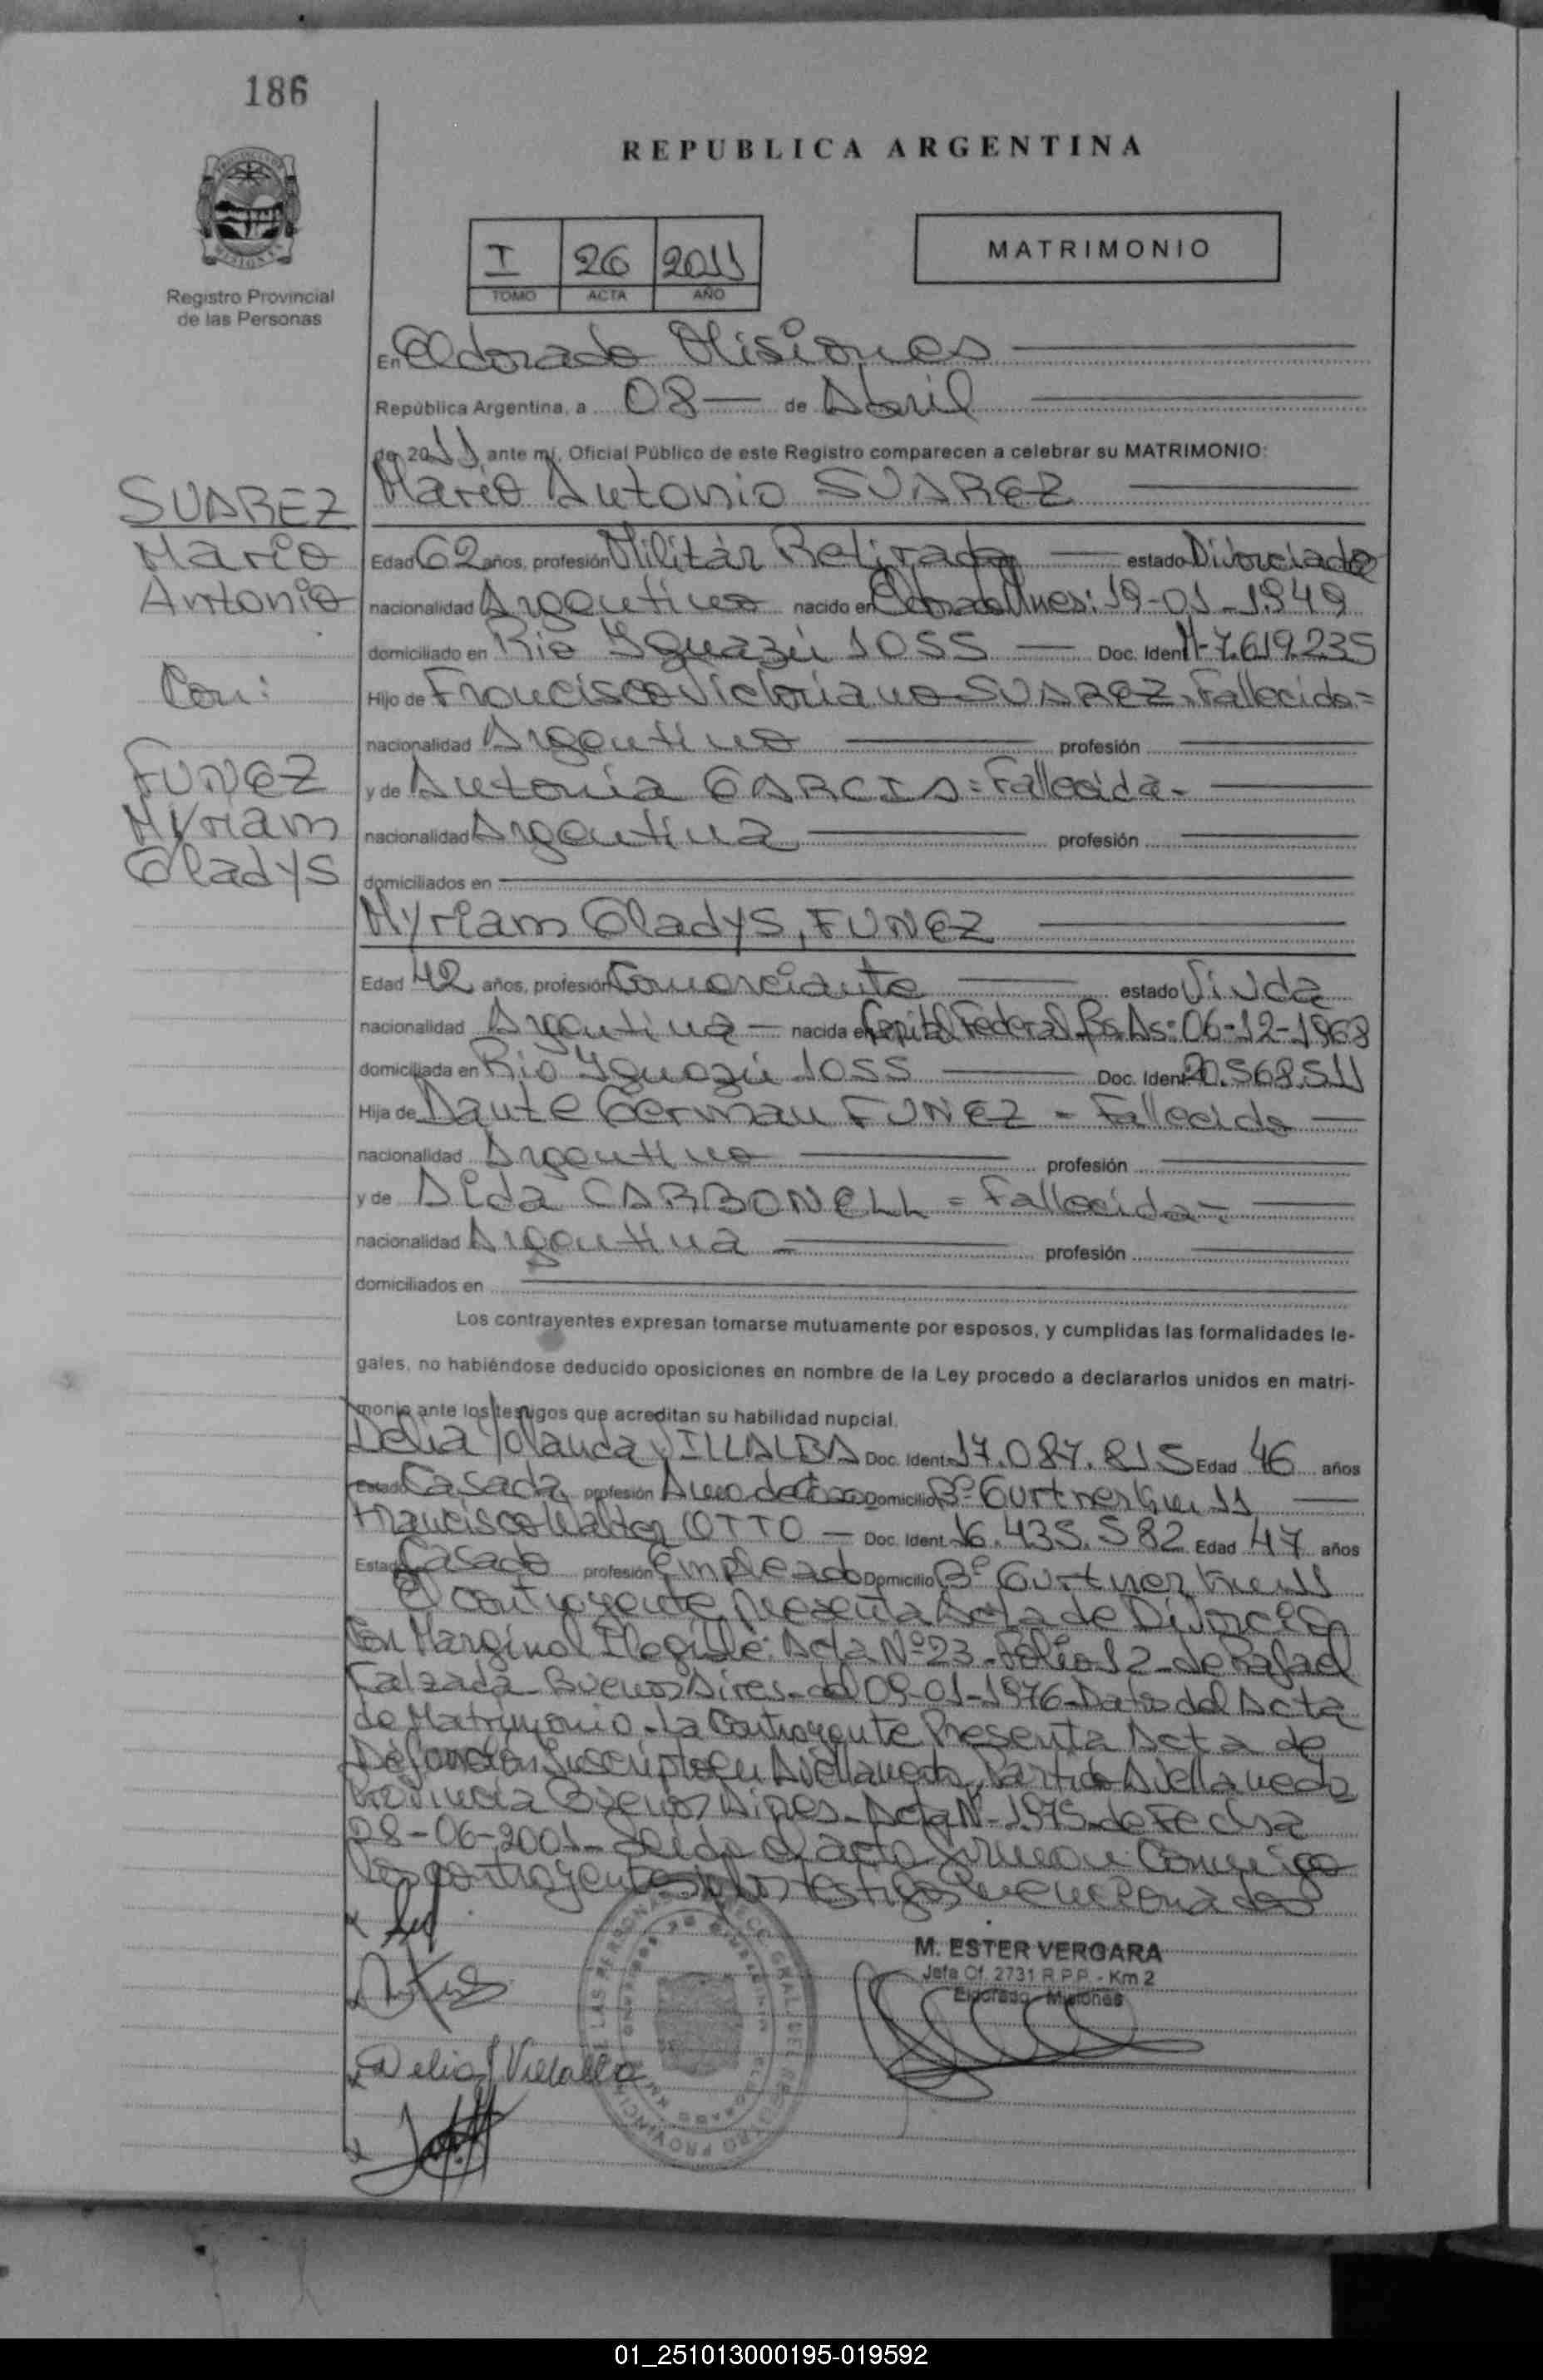 186
REPUBLICA ARGENTINA
I 26 2011
TOMO ACTA AÑO
MATRIMONIO
Registro Provincial
de las Personas
En Eldorado Misiones
República Argentina, a 08 de Abril
de 2011 ante mí, Oficial Público de este Registro comparecen a celebrar su MATRIMONIO:
SUAREZ
Mario
Antonio
Con:
FUNEZ
Myriam
Gladys
Mario Antonio SUAREZ
Edad 62 años, profesión Militar Retirado estado Divorciado
nacionalidad Argentino nacido en Mnes: 19-01-1949
domiciliado en Rio Yguazú 1055 Doc. Ident M-7.619.235
Hijo de Francisco Victoriano SUAREZ, Fallecido=
nacionalidad Argentino profesión
y de Antonia GARCIA=Fallecida-
nacionalidad Argentina profesión
domiciliados en
Myriam Gladys, FUNEZ
Edad 42 años, profesión Comerciante estado Viuda
nacionalidad Argentina - nacida en Capital Federal Bs. As: 06-12-1968
domiciliada en Rio Yguazú 1055 Doc. Ident 20.568.511
Hija de Dante German FUNEZ - Fallecido
nacionalidad Argentino profesión
y de Aida CARBONELL = Fallecida-
nacionalidad Argentina - profesión
domiciliados en
Los contrayentes expresan tomarse mutuamente por esposos, y cumplidas las formalidades le-
gales, no habiéndose deducido oposiciones en nombre de la Ley procedo a declararlos unidos en matri-
monio ante los testigos que acreditan su habilidad nupcial.
Delia Yolanda VILLALBA Doc. Ident. 17.087.815 Edad 46 años
Estado Casada profesión Ama de Casa Domicilio Bº Gurtner Km 11
Francisco Walter OTTO - Doc. Ident. 16.435.582 Edad 47 años
Estado Casado profesión Empleado Domicilio Bº Gurtner Km 11
El contrayente presenta Acta de Divorcio
Con Marginal Ilegible: Acta Nº 23 - Folio 12 - de Rafael
Calzada - Buenos Aires - del 09-01-1976 - Datos del Acta
de Matrimonio - La Contrayente Presenta Acta de
Defunción Inscripto en Avellaneda, Partido Avellaneda
Provincia Buenos Aires - Acta Nº - 1975 - de Fecha
28-06-2001 - Leída el acta firman Conmigo
los contrayentes y los testigos mencionados
M. ESTER VERGARA
Jefa Of. 2731 R.P.P. - Km 2
Eldorado - Misiones
Delia Y Villalba
01_251013000195-019592